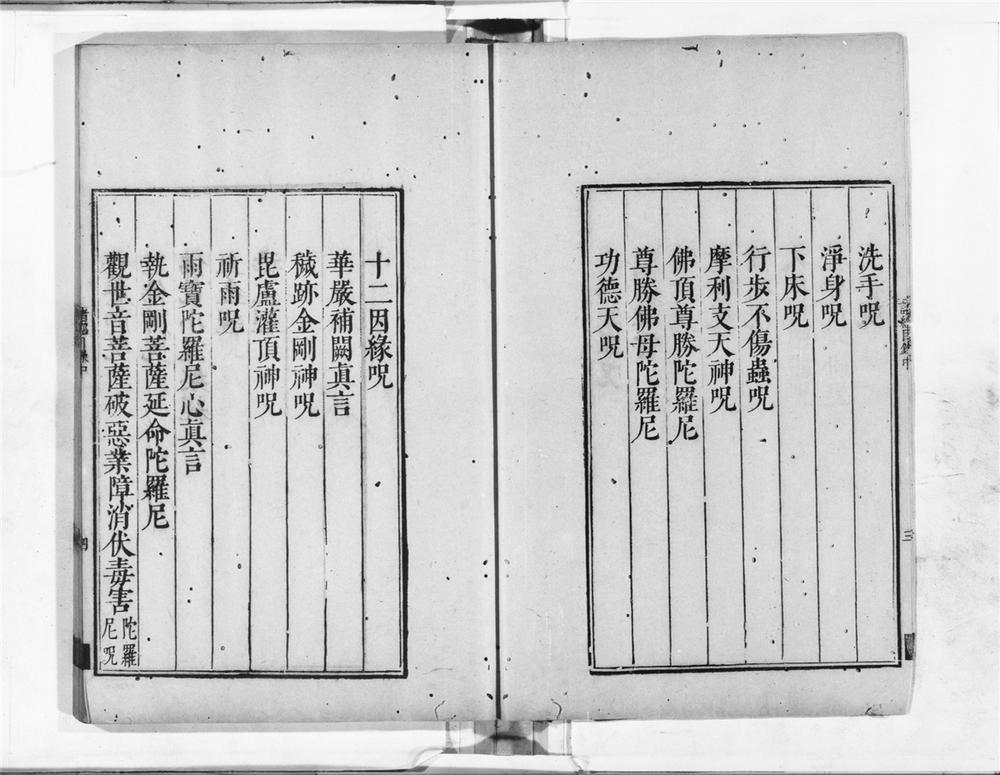 洗手呪
淨身呪
下床呪
行步不傷蟲呪
摩利支天神呪
佛頂尊勝陀羅尼
尊勝佛母陀羅尼
功德天呪
十二因緣呪
華嚴補闕眞言
穢跡金剛神呪
毘盧灌頂神呪
祈雨呪
雨寶陀羅尼心眞言
執金剛菩薩延命陀羅尼
觀世音菩薩破惡業障消伏毒害陀羅尼呪